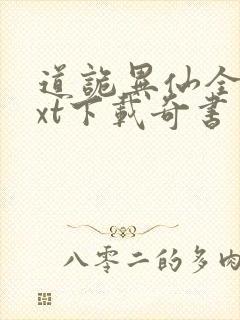 道詭異仙全
xt下載奇書
八零二的多肉